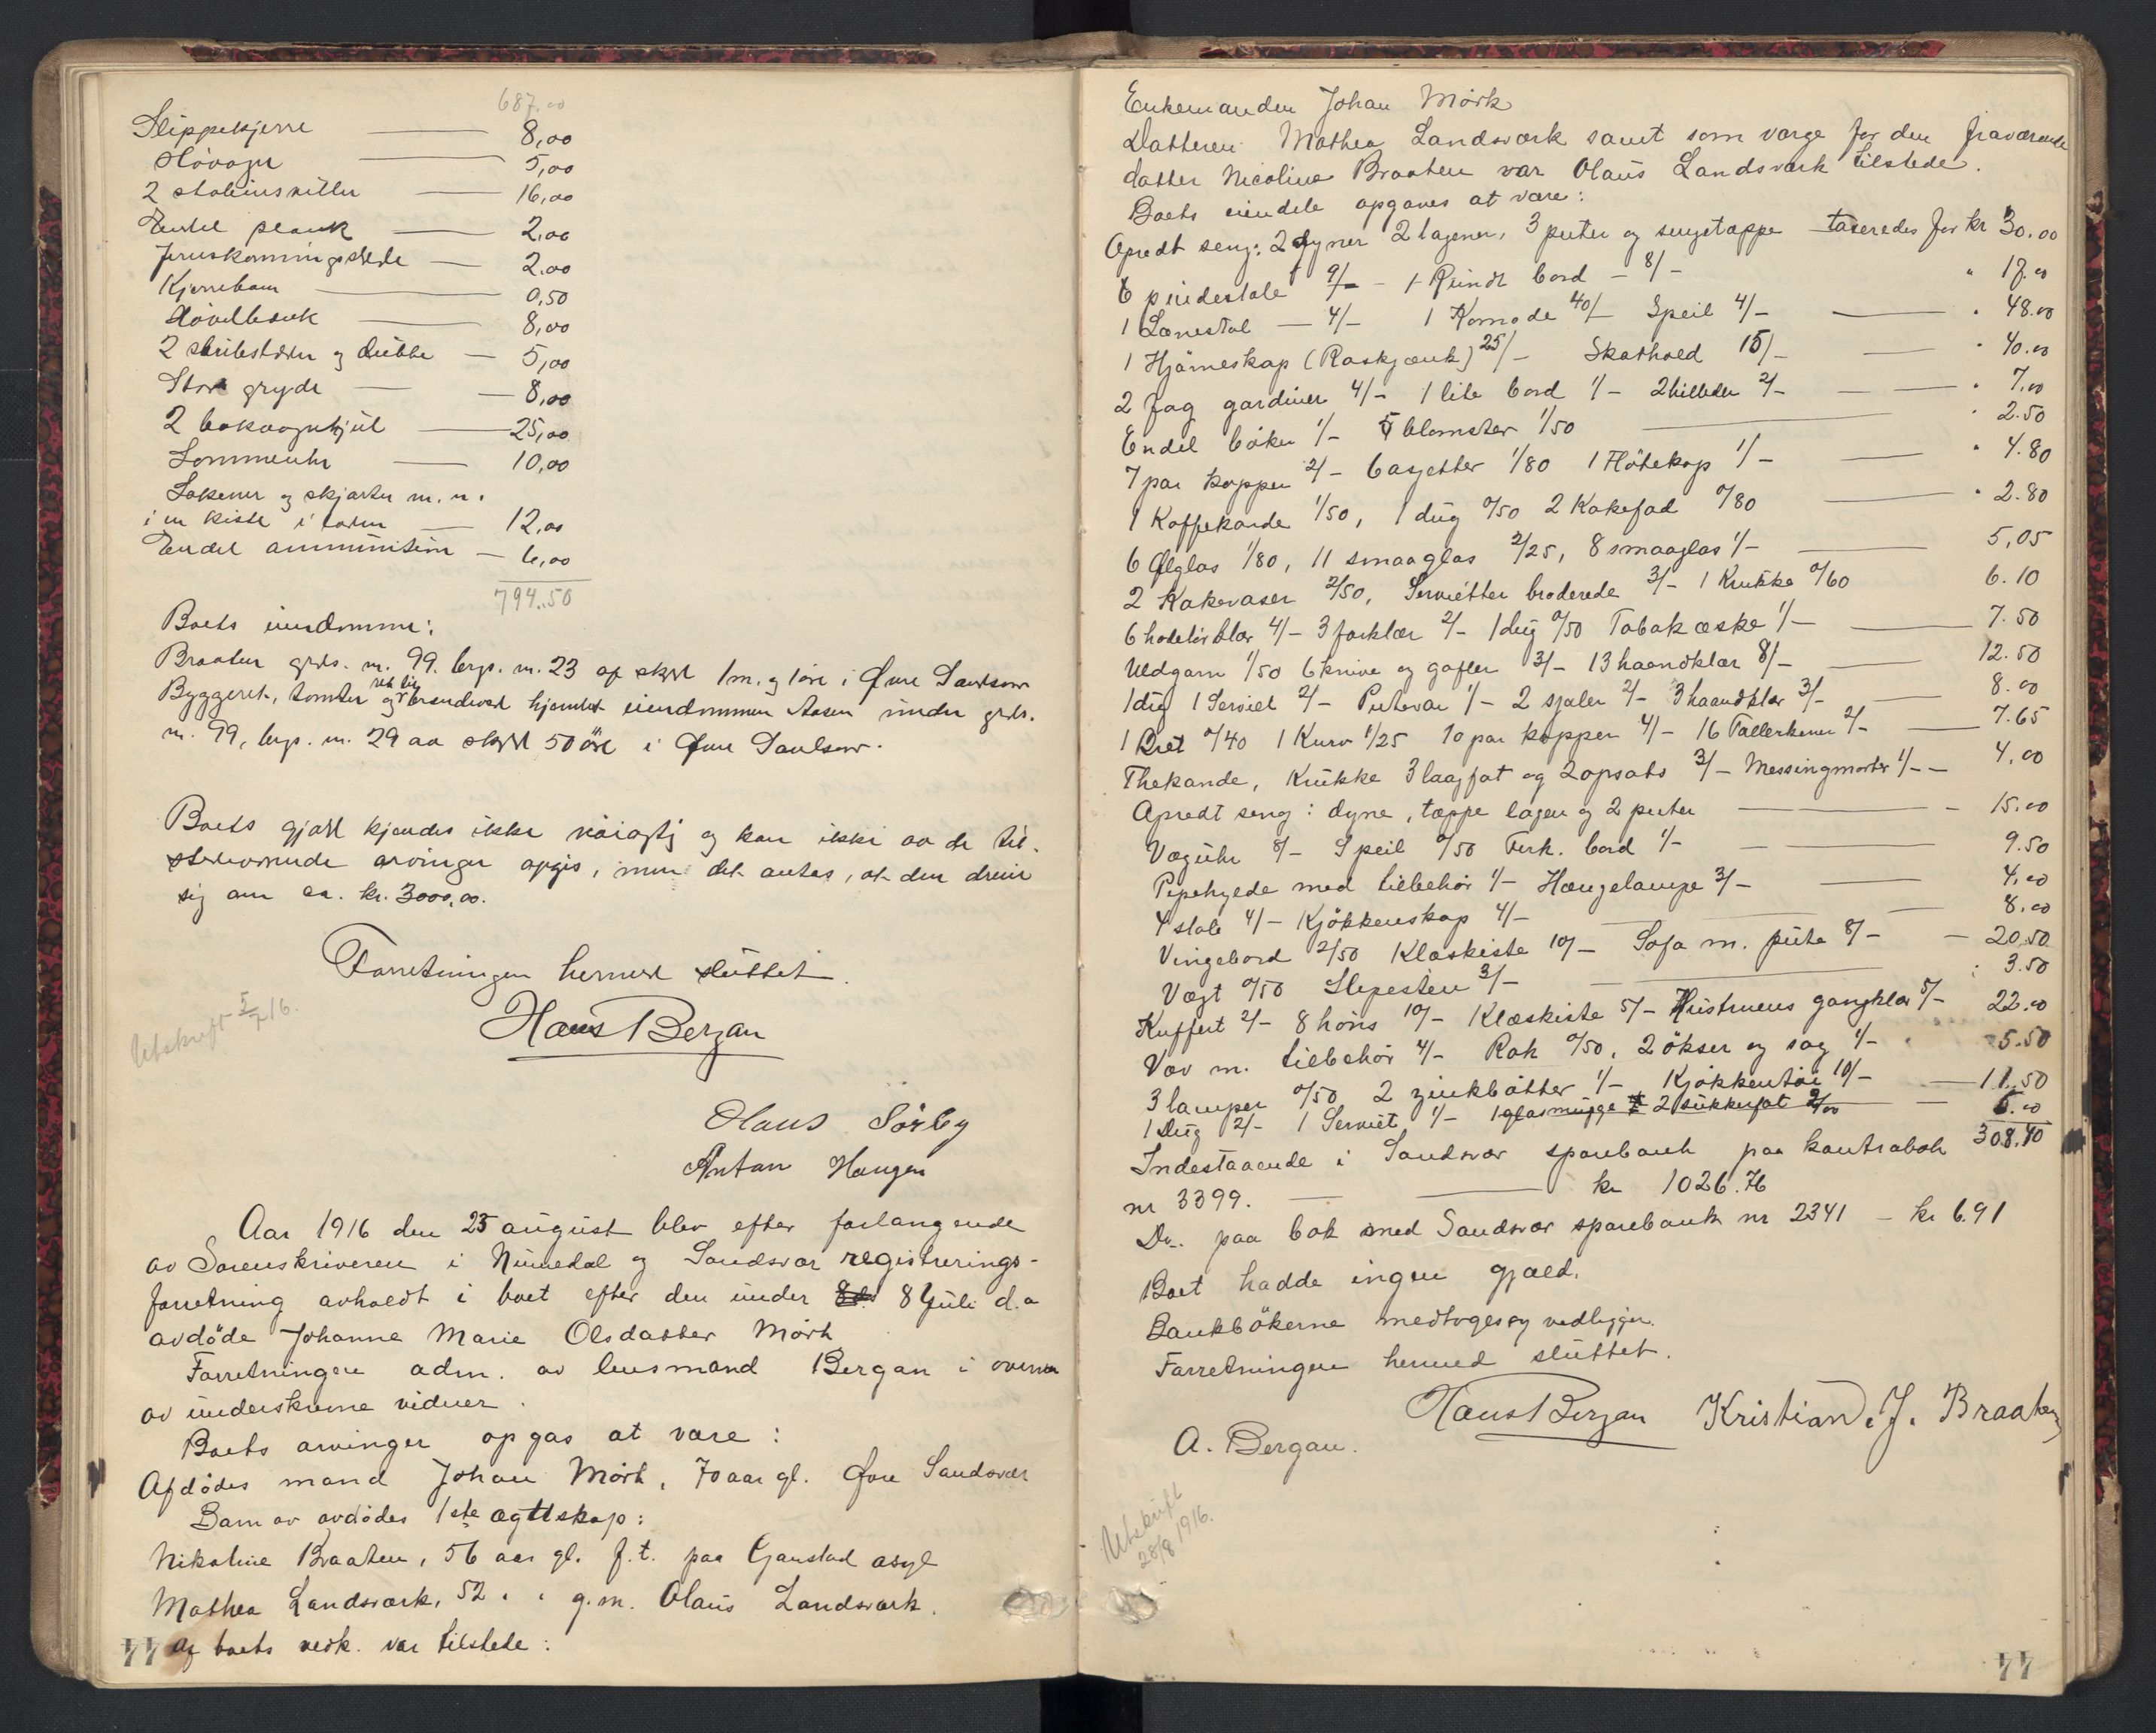 687.00
Slippekjerre — 8,00
Hövogn — 5,00
2 staliinskiller — 16,00
Endel plank — 2,00
Jernskoningsslede — 2.00
Kjerrebom — 0,50
Hövelbenk — 8,00
2 og dubbe — 5,00
Stor gryde — 8,00
2 bakvognhjul — 25,00
Lommeuhr — 10,00
Lakener og skjorter m. m.
i en kiste i — 12,00
Endel ammunition — 6,00
794.50
Boets eiendomme:
Braaten grds. nr. 99. brgs. nr. 23 af skyld 1 m. og 1 öre i Øvre Sandsvær
Byggeret, tomter og ret til brændeved hjemlet eiendommen Aasen under grds.
nr. 99, brgs. nr. 29 aa skyld 50 öre i Øvre Sandsvær.
Boets gjæld kjendes ikke nöiagtig og kan ikke av de til-
stedeværende arvinger opgis, men det antas, at den dreier
sig om ca. kr. 3000,00.
Forretningen hermed sluttet.
Hans Bergan
Utskrift 5/7 16.
Olaus Sörby
Anton Haugen
Aar 1916 den 25 august blev efter forlangende
av Sorenskriveren i Numedal og Sandsvær registrerings-
forretning avholdt i boet efter den under 8 Juli d.a
avdöde Johanne Marie Olsdatter Mörk
Forretningen adm. av lensmand Bergan i overvær
av underskrevne vidner.
Boets arvinger opgas at være:
Afdödes mand Johan Mörk, 70 aar gl. Øvre Sandsvær
Barn av avdödes 1ste ægteskap:
Nikoline Braaten, 56 aar gl. f.t. paa Gaustad asyl
Mathea Landsværk, 52 " " g.m. Olaus Landsværk.
Af boets vedk. var tilstede:
44
Enkemanden Johan Mörk
Datteren Mathea Landsværk samt som værge for den fraværende
datter Nicoline Braaten var Olaus Landsværk tilstede.
Boets eiendele opgaves at være:
Opredt seng: 2 dyner 2 lagener, 3 puter og sengetæppe taxeredes for kr 30.00
6 pindestole 9/- 1 Rundt bord - 8/- " 17.00
1 Lænestol — 4/- 1 Komode 40/- Speil 4/- — " 48.00
1 Hjörneskap (Roskjænk) 25/- Skathold 15/- — " 40.00
2 fag gardiner 4/- 1 lite bord 1/- 2 billeder 2/- — " 7.00
Endel böker 1/- 5 blomster 1/50 — " 2.50
7 par kopper 2/- 6 asjetter 1/80 1 Flötekop 1/- — " 4.80
1 Kaffekande 1/50, 1 dug 0/50 2 Kakefad 0/80 — " 2.80
6 Ølglas 1/80, 11 smaaglas 2/25, 8 smaaglas 1/- — 5,05
2 Kakevaser 2/50, Servietter broderede 3/- 1 Krukke 0/60 6.10
6 hodetörklær 4/- 3 forklær 2/- 1 dug 0/50 Tobakæske 1/- — 7.50
Uldgarn 1/50 6 knive og gafler 3/- 13 haandklær 8/- — 12.50
1 dug 1 Serviet 2/- Putevar 1/- 2 sjaler 2/- 3 haandklær 3/- — 8.00
1 Bret 0/40 1 Kurv 1/25 10 par kopper 4/- 16 Tallerkener 2/- — 7.65
Thekande, Krukke 3 laagfat og 2 opsats 3/- Messingmorter 1/- — 4,00
Opredt seng: dyne, tæppe lagen og 2 puter — 15.00
Vægúhr 8/- Speil 0/50 Firk. bord 1/- — 9.50
Pipehylde med tilbehör 1/- Hængelampe 3/- — 4,00
4 stole 4/- Kjökkenskap 4/- — 8.00
Vingebord 2/50 Klæskiste 10/- Sofa m. pute 8/- — 20.50
Vægt 0/50 Slipesten 3/- — 3.50
Kuffert 2/- 8 höns 10/- Klæskiste 5/- Hustruens gangklær 5/- 22.00
Væv m. tilbehör 4/- Rok 0/50, 2 ökser og sag 1/- " 5.50
3 lamper 0/50 2 zinkbötter 1/- Kjökkentöi 10/- — 11.50
1 Dug 2/- 1 Serviet 1/- 1 glasmugge 2 sukkerfat 2/00 — 5.00
308.40
Indestaaende i Sandsvær sparebank paa kontrabok
nr 3399. — kr 1026.76
Do. paa bok med Sandsvær sparebank nr 2341 — kr 6.91
Boet hadde ingen gjæld.
Bankbökerne medtoges og vedligger.
Forretningen hermed sluttet.
Hans Bergan Kristian J. Braaten
A. Bergan.
Utskrift
28/8 1916.
44